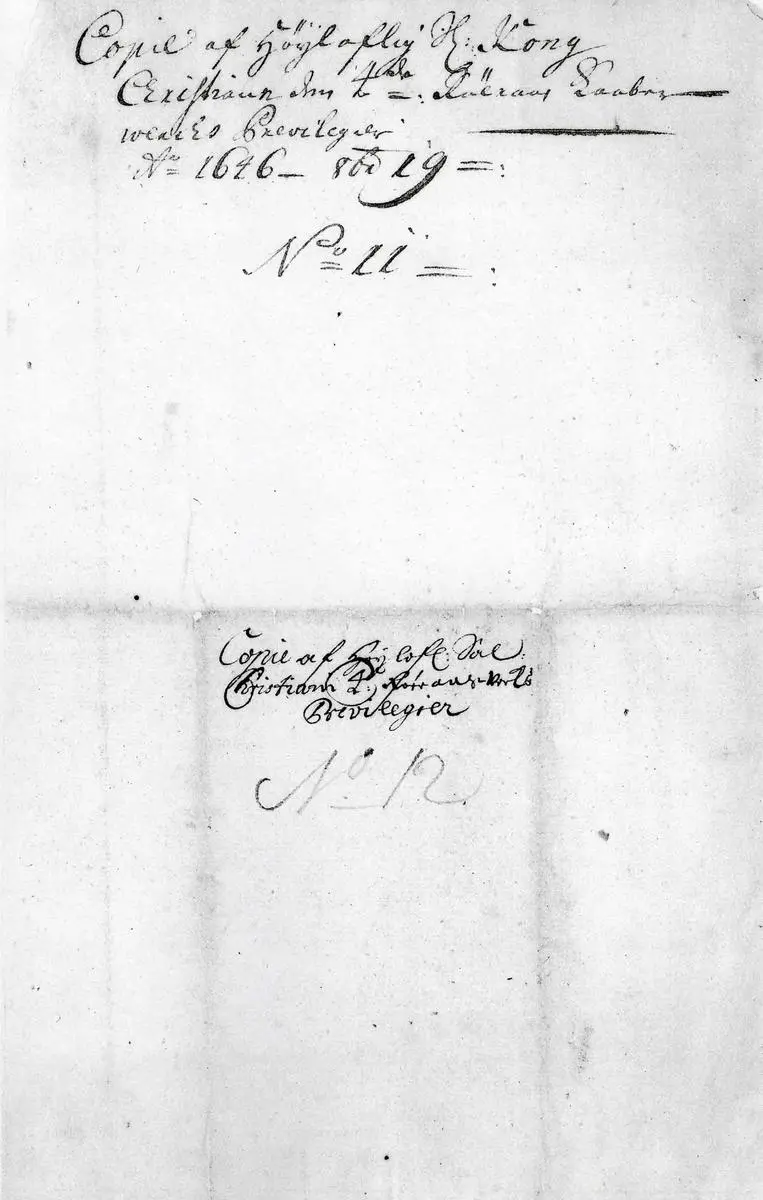 Copie af Höyloflig Sl: Kong
Christian den 4de: Röeraas Kaaber
werchs Previlegier
Ao 1646 – 8bd 19 =:
No 11 =:
Copie af Höylofl: Sal:
Christiani 4: Röeraas Verks
Previlegier
No 12